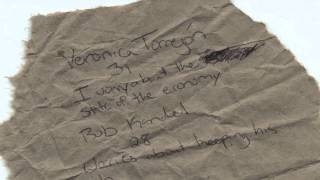 Veronica Torrejón
31
I worry about the
state of the economy
Bob
28
Worries about keeping his